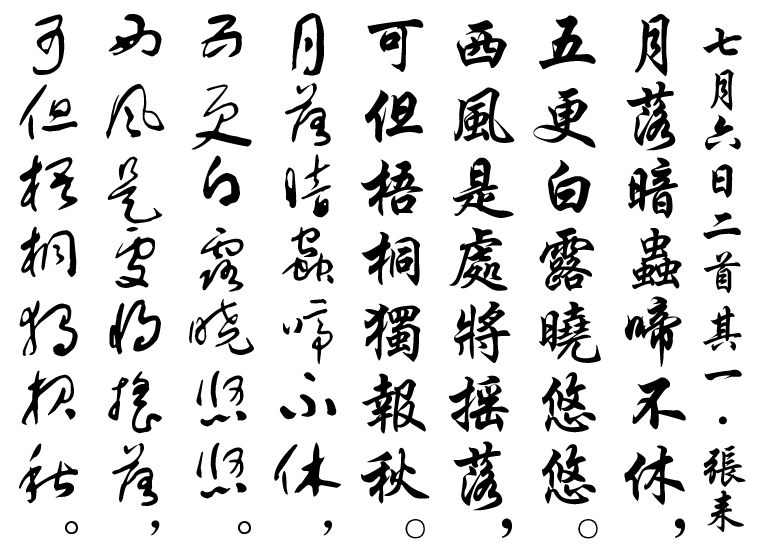 七月六日二首其一·張耒
月落暗蟲啼不休，
五更白露曉悠悠。
西風是處將摇落，
可但梧桐獨報秋。
月落暗蟲啼不休，
五更白露曉悠悠。
西風是處將摇落，
可但梧桐獨報秋。